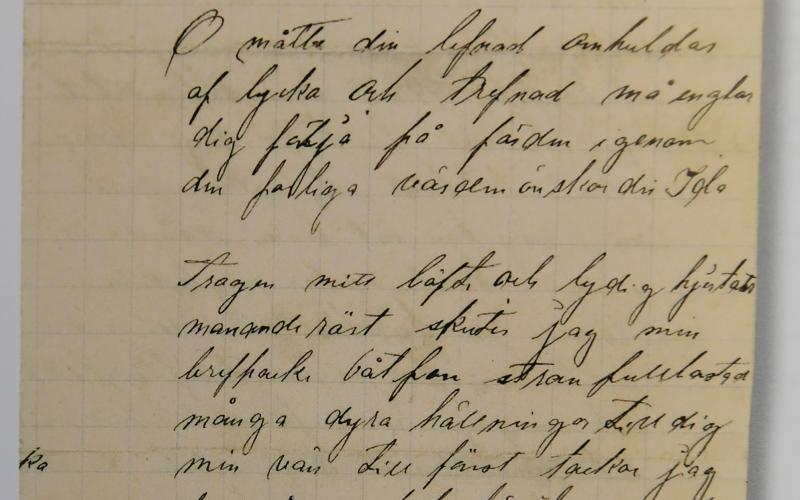 O måtte din lefnad omhuldas
af lycka och trefnad må englar
dig följa på färden igenom
den farliga värdemönskar din Ida
Trogen mitt löfte och lydig hjertats
manande röst skuter jag min
brefpacke båt från stran fullastad
många dyra hällsningar till dig
ka
min vän till först tackar jag